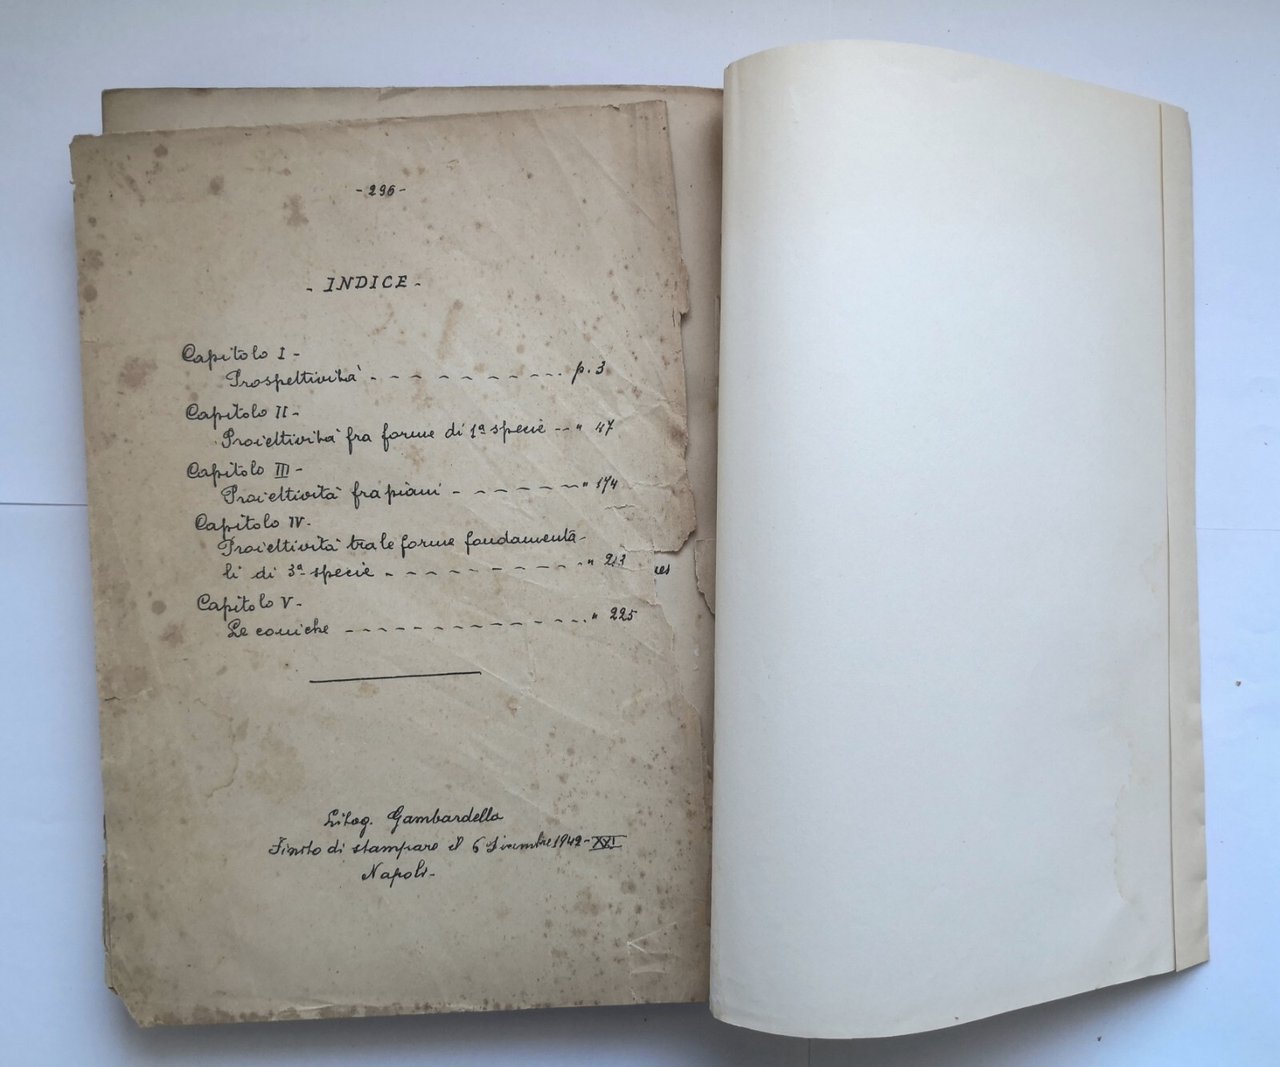 - 296 -
- INDICE -
Capitolo I -
Prospettività - - - - - - - - - - p. 3
Capitolo II -
Proiettività fra forme di 1ª specie - - " 47
Capitolo III -
Proiettività fra piani - - - - - - " 174
Capitolo IV -
Proiettività tra le forme fondamenta-
li di 3ª specie - - - - - - - - - " 213
Capitolo V -
Le coniche - - - - - - - - - - - - " 225
Litog. Gambardella
Finito di stampare il 6 Dicembre 1942 - XXI
Napoli -